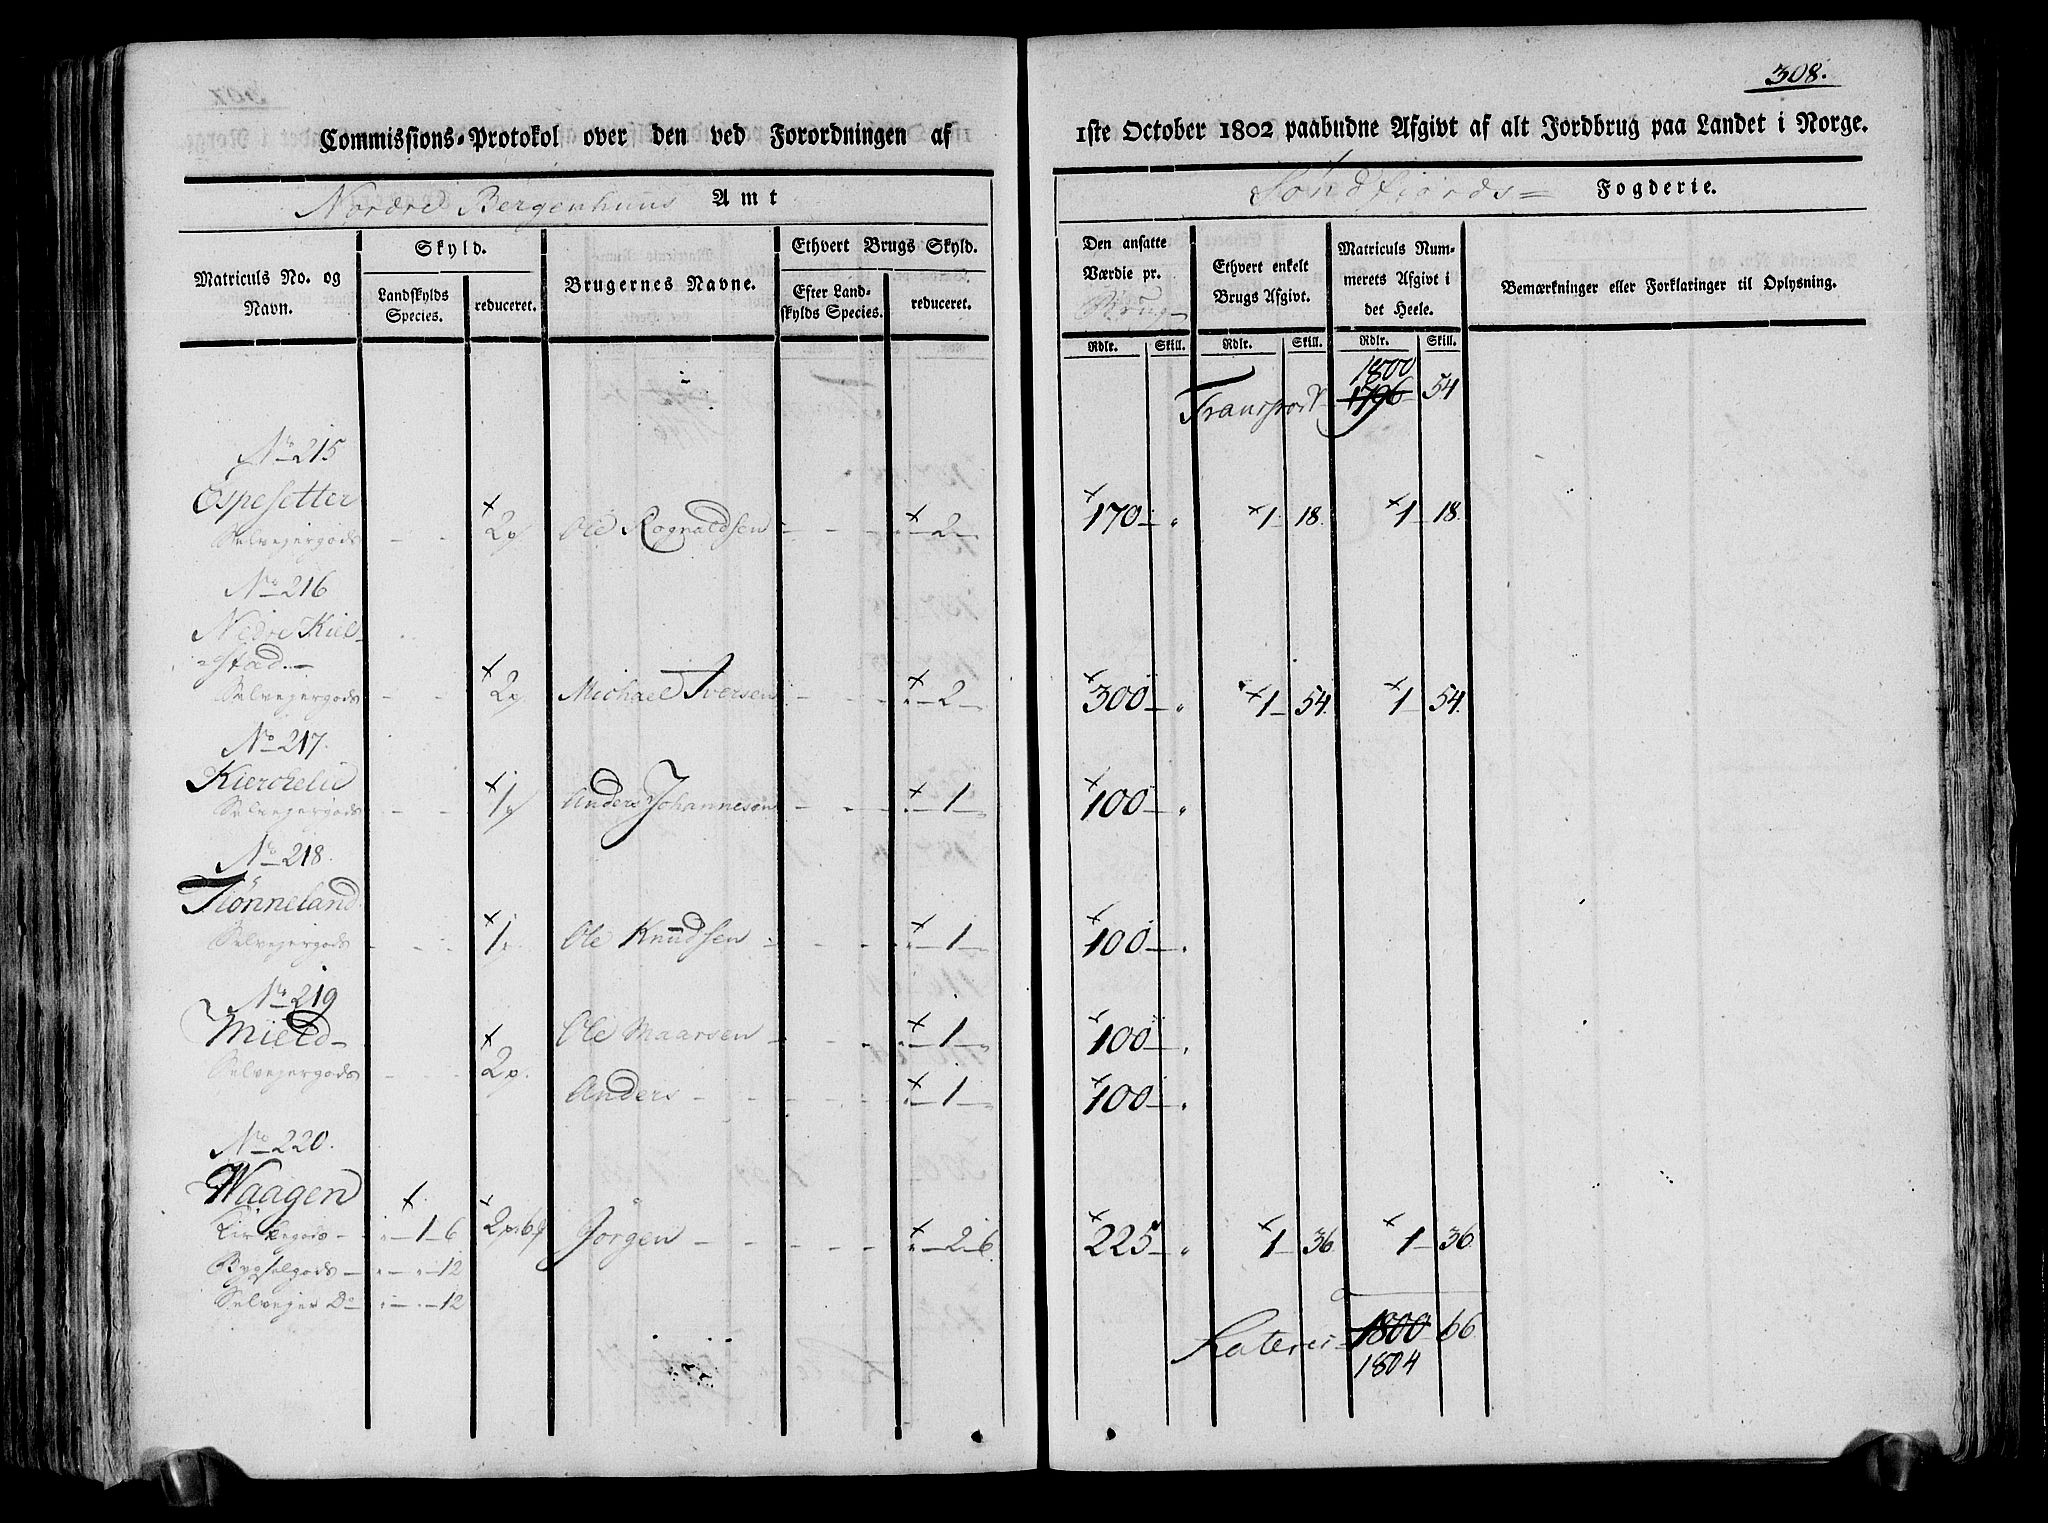 308.
Commissions-Protokol over den ved Forordningen af
1ste October 1802 paabudne Afgivt af alt Jordbrug paa Landet i Norge.
Nordre Bergenhuus Amt
Söndfjords= Fogderie.
Matriculs No. og Navn.
Skyld.
Landskylds Species.
reduceret.
Brugernes Navne.
Ethvert Brugs Skyld.
Efter Landskylds Species.
reduceret.
Den ansatte Værdie pr. Brug
Ethvert enkelt Brugs Afgivt.
Matriculs Nummerets Afgivt i det Heele.
Bemærkninger eller Forklaringer til Oplysning.
Rdlr. Skill. Rdlr. Skill. Rdlr. Skill.
1800
Transport 1796 54
No 215
Espesetter
Selvejergods - - 2p Ole Rognaldsen - - - 2 - 170 - " 1 - 18. 1 - 18.
No 216
Nedre Kiel-
stad.
Selvejergods - - 2p Michael Iversen - - - 2 - 300 - " 1 - 54. 1 - 54.
No 217.
Kierchelie
Selvejergods - - 1p Anders Johannesen - - - 1 - 100 - "
No 218.
Tiönneland
Selvejergods - - 1p Ole Knudsen - - - 1 - 100 - "
No 219
Mield
Ole Maarsen - - - 1 - 100 - "
Selvejergods - - 2p.
Anders - - - - - 1 - 100 - "
No 220.
Waagen
Kirkegods - " - 1 - 6 2p 6 Jörgen - - - - " - 2 - 6 225 - " 1 36 1 - 36.
Bygselgods - " - " - 12
Selvejer Do " - " - 12
Lateris 1800 66
1804